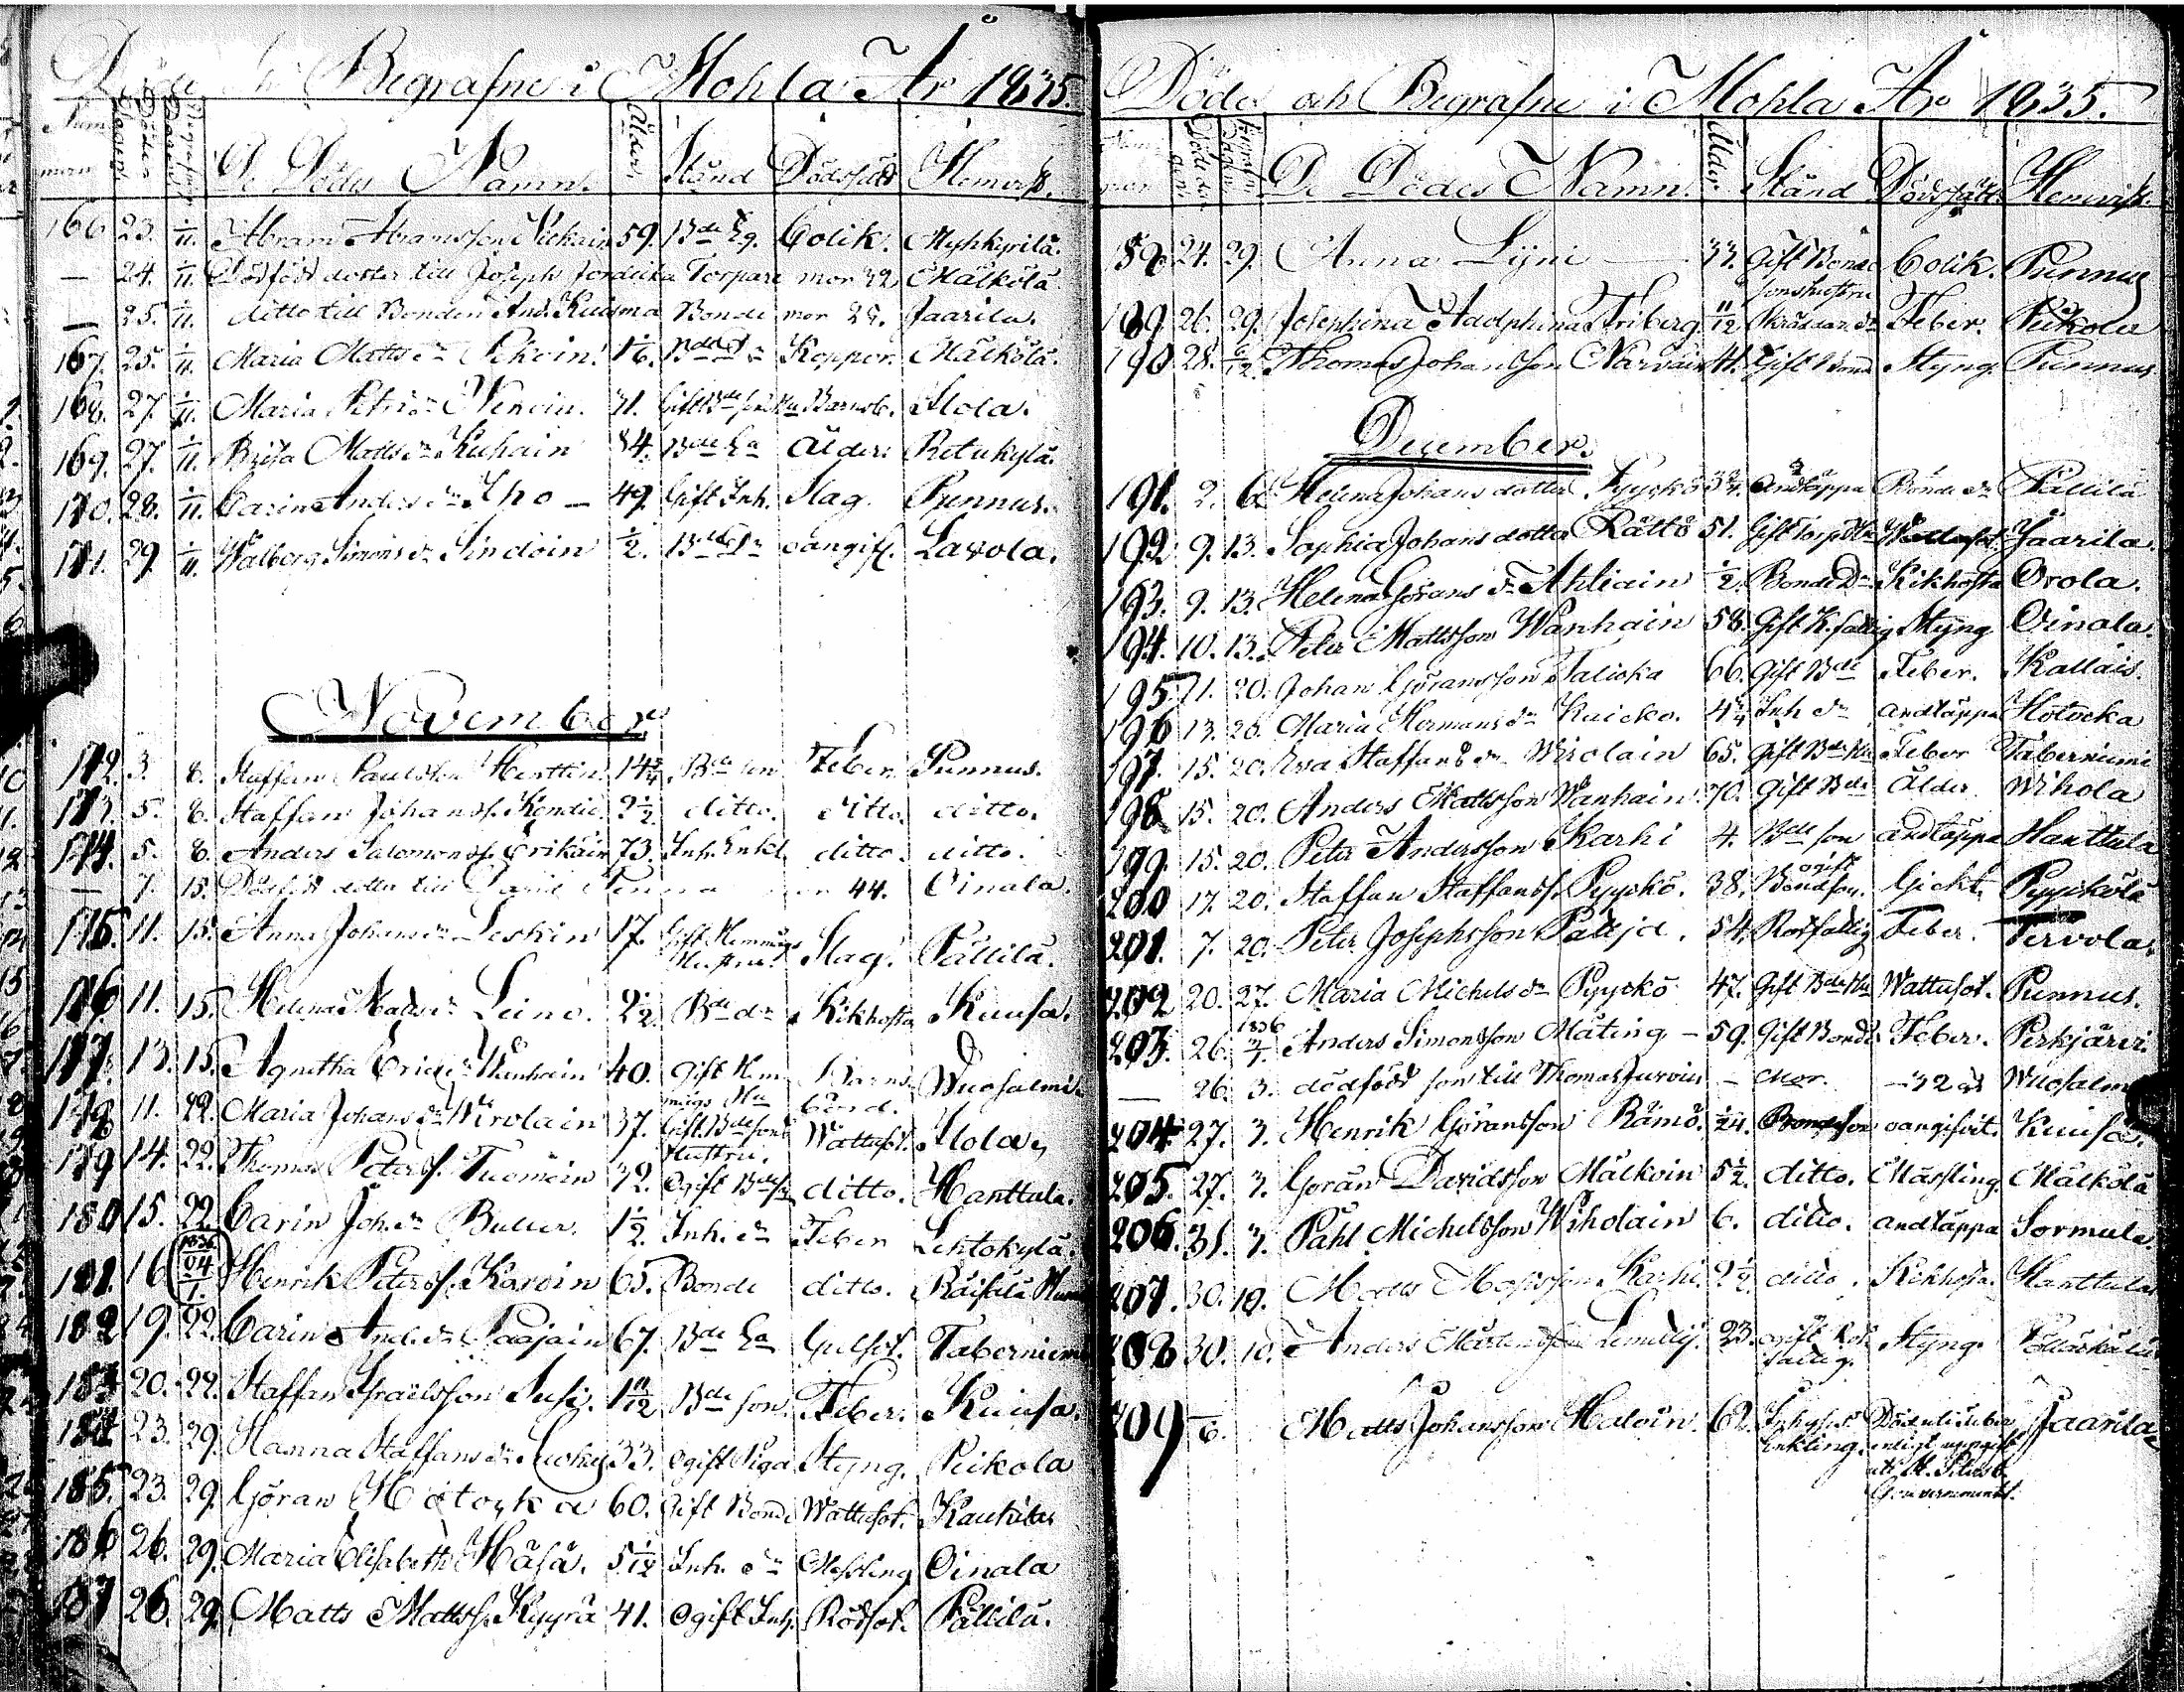 Begrafne i Mohla År 1835.
Nummern Dagen Döde Begrafne Dagen De Dödes Namn. Ålder Stånd Dödssätt Hemvist.
166 23. 1/11. Abram Abramsson Kekäin 59. Bde Eg. Colik. Myhkyrilä.
— 24. 1/11. Dödfödd dotter till Joseph Torpare mor 32 Mälkölä
— 25. 1/11. ditto till Bonden And. Kuisma Bonde mor 28. Jaarila.
167. 25. 1/11. Maria Matts dr Pekoin. 1/6. Bde Dr Koppor. Mälkölä.
168. 27. 1/11. Maria Petri dr 31. Gift Bde sons Hu Barnsb. Ilola.
169. 27. 1/11. Brita Matts dr Kuhain 84. Bde Ea Ålder. Retukylä.
170. 28. 1/11. Carin Anders dr Iho — 49. Gift Inh. Slag. Punnus.
171. 29. 1/11. Walborg Simons dr Sindoin 1/2. Bde Dr oangif. Lavola.
November
172. 3. 8. Staffan Paulsson Herttin. 14 3/4 Bde son Feber Punnus.
173. 5. 8. Staffan Johanss. 2 1/2 ditto. ditto. ditto.
174. 5. 8. Anders Salomonss. Erikäin 73. Inh. Enkl. ditto. ditto.
— 7. 15. Dödfödd dotter till 44. Oinala.
175. 11. 15. Anna Johans dr Leskin 17. Gift Hemmågs Hustru. Slag. Pällilä.
176 11. 15. Helena Mats dr Leino. 2 1/2 Bde dr Kikhosta Kuusa.
177. 13. 15. Agnetha Erics dr Wanhain 40. Gift Hemmågs Hu Barnsbörd. Wuosalmi.
178 11. 22. Maria Johans dr Wirolain 37. Gift Bde sons Hustru. Wattusot. Ilola,
179 14. 22. Thomas Peterss. Tuomoin 32. Ogift Bde s. ditto. Hanttula.
180 15. 22. Carin Joh. dr Buller. 1 1/2 Inh. dr Feber Lehtokylä.
181. 16 1836 04/1. Henrik Peterss. Karvin 65. Bonde ditto. Räisälä
182 19. 22. Carin And. dr Paajain 67. Bde Ea Gulsot. Taberniemi
183 20. 22. Staffan Israëlsson Susi. 1 11/12 Bde son. Feber. Kuusa.
184 23. 29. Hanna Staffans dr 33. Ogift Piga Styng. Peikola
185. 23. 29. Göran Hötocka 60. Gift Bonde Wattusot. Kaukila
186 26. 29. Maria Elisabeth Häfä. 5 1/12 Inh. dr Messling Oinala
187 26. 29. Matts Mattss. Kyyrä 41. Ogift Inh. Rödsot. Pällilä.
Döde och Begrafne i Mohla År 1835.
De Dödes Namn. Ålder Stånd Dödssätt Hemvist.
188 24. 29. Anna Lijni — 33. Gift Bonde sonshustru Colik. Punnus
189. 26. 29. Josephina Adolphina Friberg. 11/12 Skräddare dr Feber. Peikola
190 28. 6/12. Thomas Johansson Narvain 41. Gift Bond Styng. Punnus
December.
191. 2. 6. Helena Johans dotter Pyyckö Andtäppa Bonde dr Pällilä
192 9. 13. Sophia Johans dotter Rättö 51. Gift Torp. Hu Wattusot. Jaarila.
193. 9. 13. Helena Görans dr Ahliain 1/2. Bonde Dr Kikhosta Orola.
194. 10. 13. Peter Mattsson Wanhain 58. Gift R. fattig Styng Oinala.
195. 11. 20. Johan Göransson Talicka 66. Gift Bde Feber. Kalläis.
196 13. 20. Maria Hermans dr Kaicko. 4 1/4 Inh dr andtäppa Hotocka
197. 15. 20. Eva Staffans dr Wirolain 65. Gift Bde Hu Feber Taberniemi
198 15. 20. Anders Mattsson Wanhain 70. Gift Bde Ålder. Wihola
199. 15. 20. Peter Andersson Karhi 4. Bde son andtäppa Hanttula
200 17. 20. Staffan Staffanss. Pyyckö. 38. ogift Bondson. Gickt. Pyyckölä
201. 7. 20. Peter Josephsson Patja. 54. Rotfattig Feber. Tervola.
202 20. 27. Maria Michels dr Pyyckö 47. Gift Bde Hu Wattusot. Punnus.
203. 26. 1836 3/1. Anders Simonsson Mäting — 59. Gift Bonde Feber. Perkjärvi.
— 26. 3. dödfödd son till Thomas Jurvin — Mor. — 32 år Wuosalmi
204 27. 3. Henrik Göransson Rämö. 1/24. Bondeson oangifvit. Kuusa.
205. 27. 3. Göran Davidsson Mälkoin 5 1/2. ditto. Mässling. Mälkölä
206. 31. 3. Påhl Michelsson Wiholain 6. ditto. andtäppa Sormula.
207. 30. 10. Matts Matsson Karhi. 2 1/2 ditto. Kikhosta. Hanttula
208 30. 10. Anders Mårtensson 23. ogift Rotfattig. Styng.
209 — 6. Matts Johansson Haloin. 62. Inhyses Enkling. Död enligt uppgift Gouvernement. Jaarila